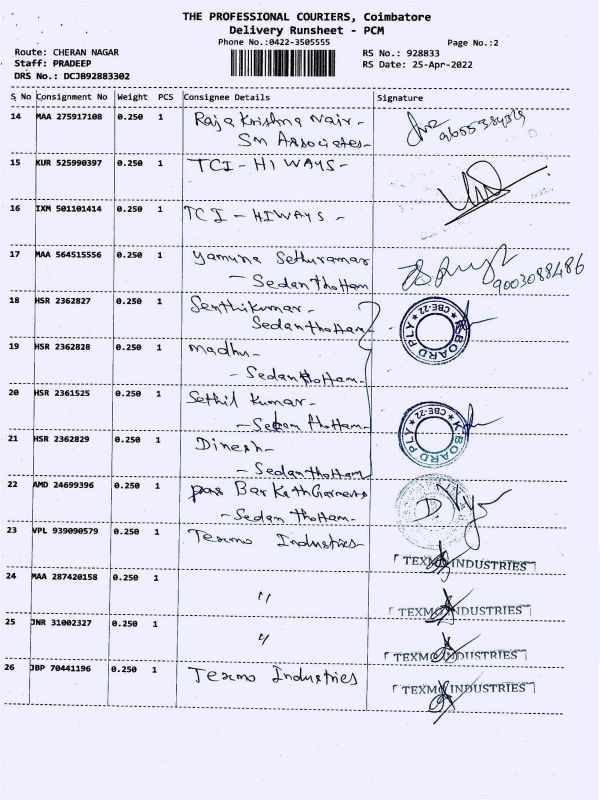 THE PROFESSIONAL COURIERS, Coimbatore
Delivery Runsheet - PCM
Phone No.:0422-3505555
Page No.:2
Route: CHERAN NAGAR
RS No.: 928833
Staff: PRADEEP
RS Date: 25-Apr-2022
DRS No.: DCJB92883302
S No Consignment No Weight PCS Consignee Details Signature
14 MAA 275917108 0.250 1 Raja Krishna Nair-
SM Associates-
15 KUR 525990397 0.250 1 TCI-HIWAYS-
16 IXM 501101414 0.250 1 TCI-HIWAYS -
17 MAA 564515556 0.250 1 Yamuna Sethuraman
- Sedan thottam 9003088486
18 HSR 2362827 0.250 1 Senthilkumar-
Sedan thottam- K-BOARD PLY CBE-22
19 HSR 2362828 0.250 1 madhu-
- Sedan thottam-
20 HSR 2361525 0.250 1 Sethil Kumar-
- Sedan thottam- K-BOARD PLY CBE-22
21 HSR 2362829 0.250 1 Dinesh-
- Sedan thottam
22 AMD 24699396 0.250 1
- Sedan thottam-
23 VPL 939090579 0.250 1 Texmo Industries-
TEXMO INDUSTRIES
24 MAA 287420158 0.250 1 "
TEXMO INDUSTRIES
25 JNR 31002327 0.250 1 "
TEXMO INDUSTRIES
26 JBP 70441196 0.250 1 Texmo Industries
TEXMO INDUSTRIES